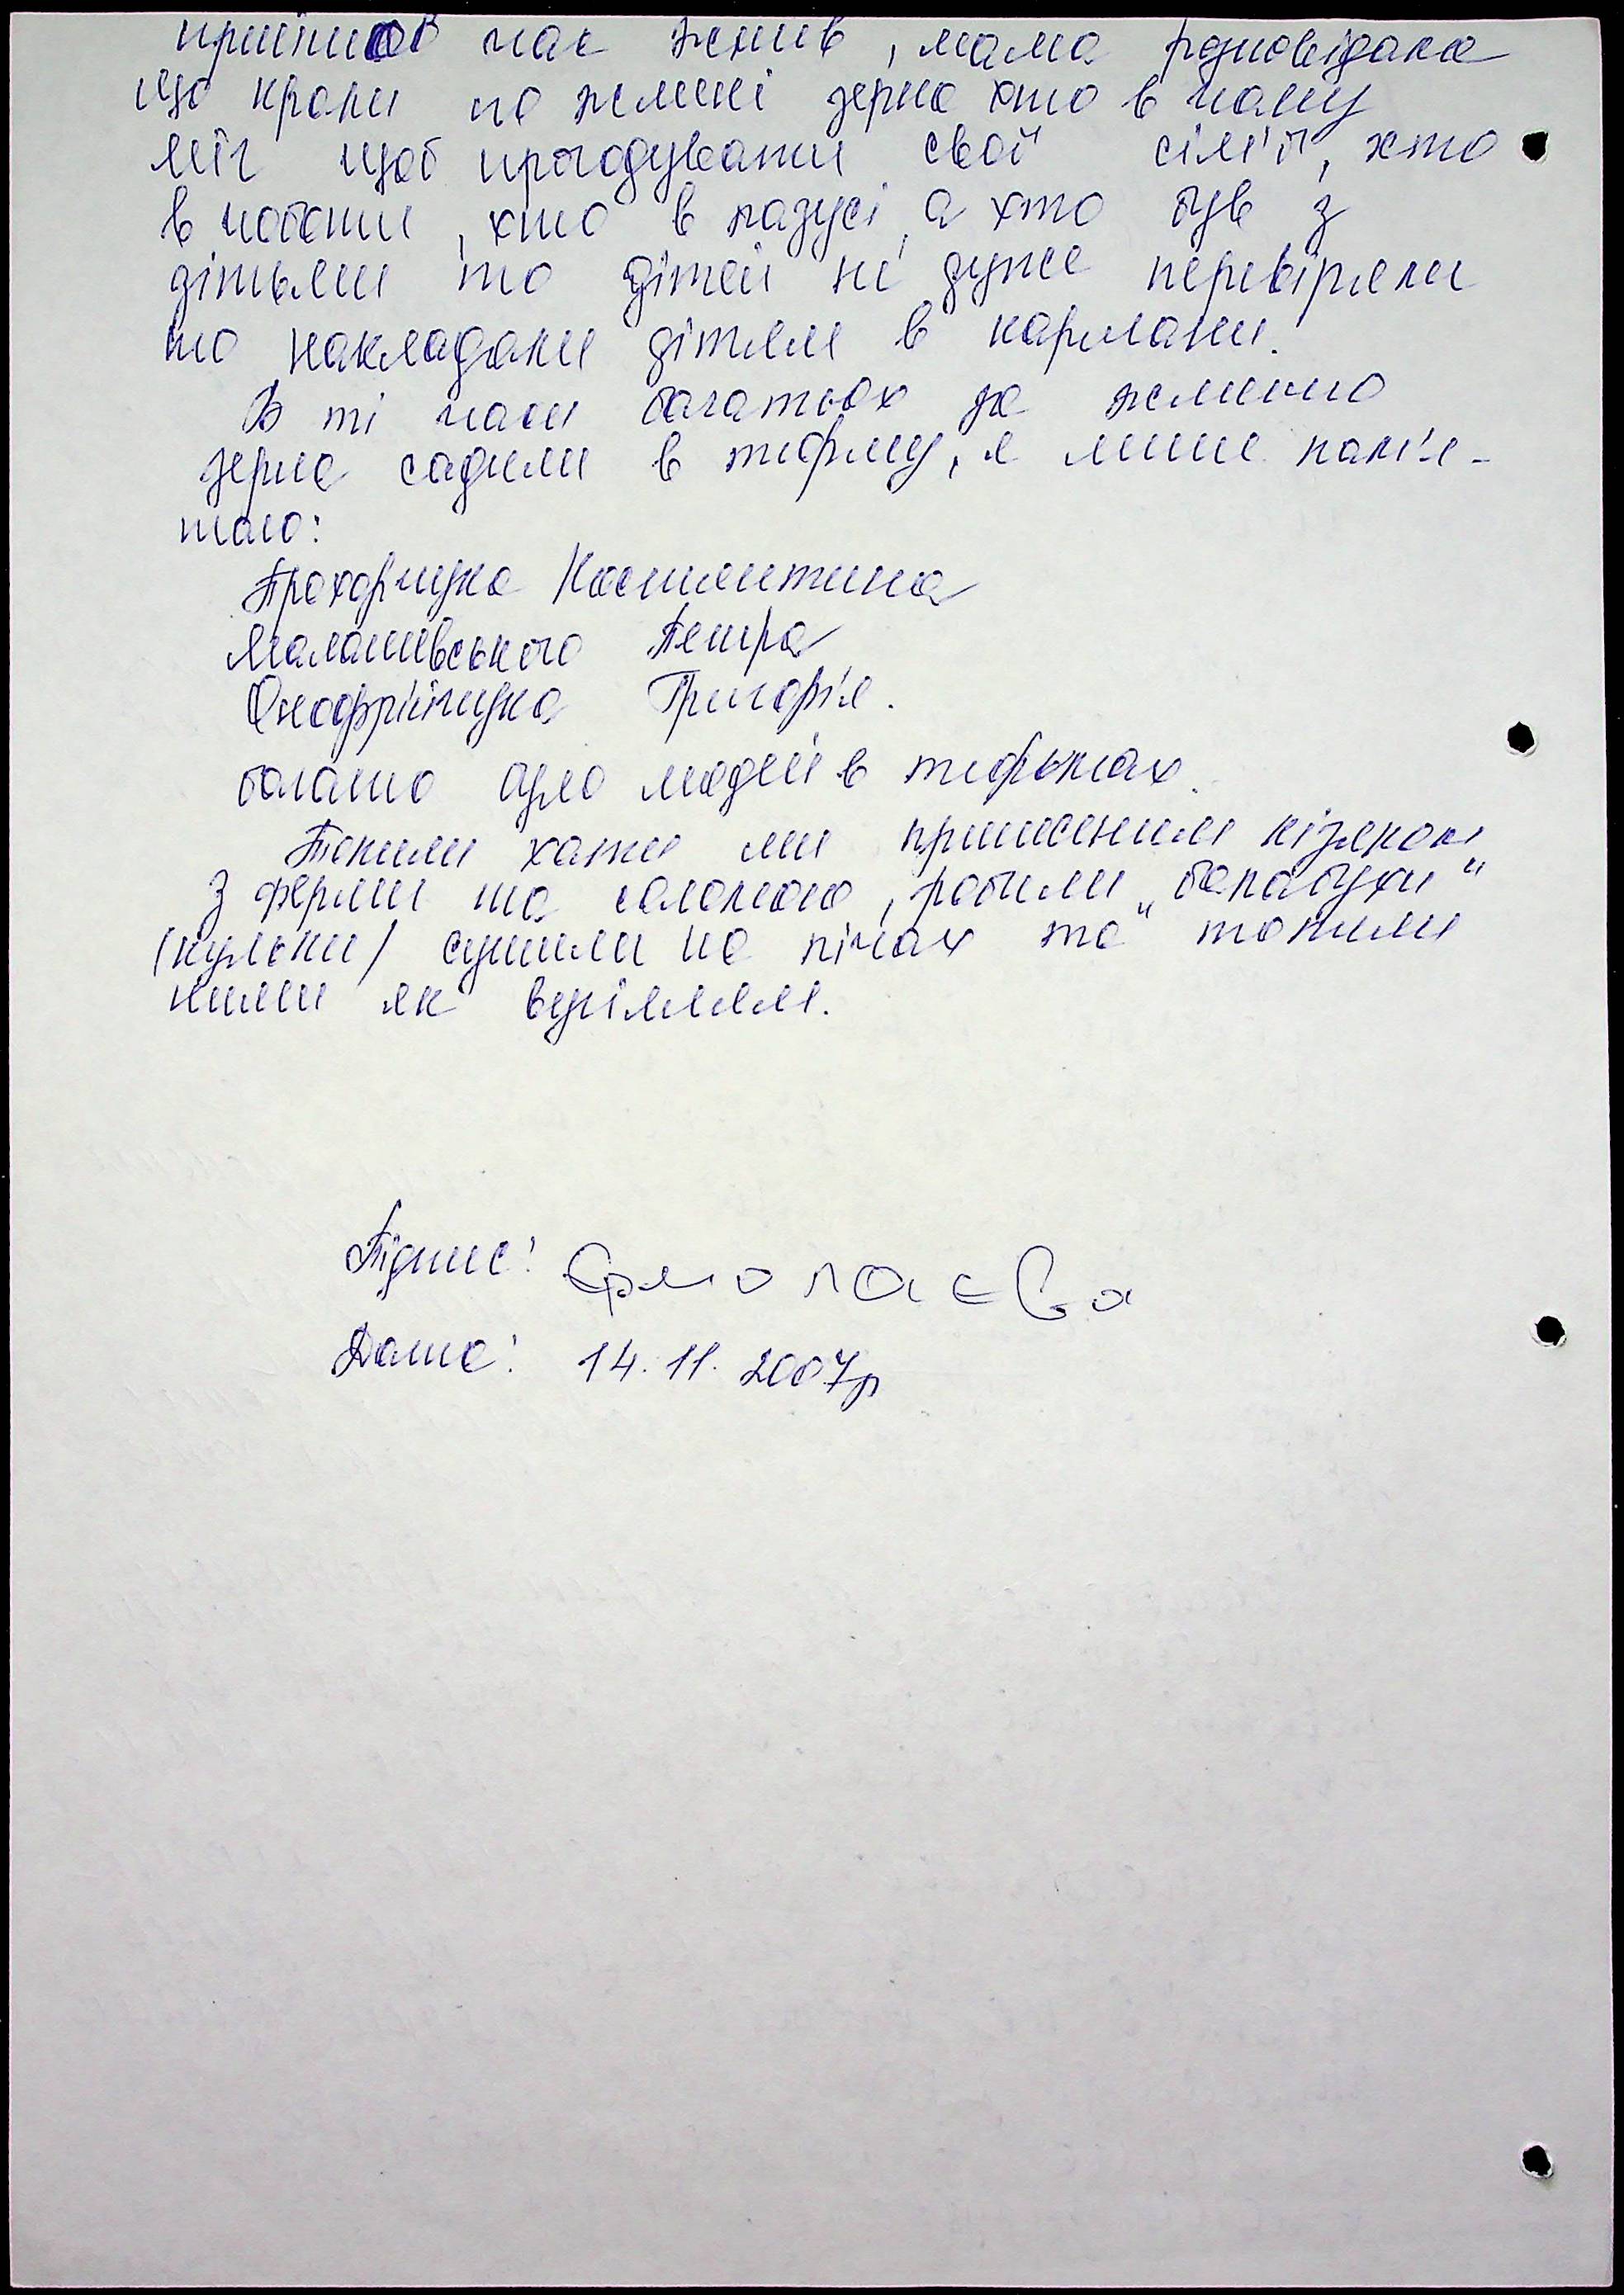 прийшов час жнив, мама розповідала
що крали по жмені зерна хто в чому
міг щоб прогодувати свої сім'ї, хто
в чоботи, хто в пазусі, а хто був з
дітьми то дітей не дуже перевіряли
то накладали дітям в кармани.
В ті часи багатьох за жменю
зерна садили в тюрму, я лише пам'я-
таю:
Прохорчука Костянтина
Малашевського Петра
Онофрійчука Григор'я.
багато було людей в тюрьмах.
Топили хати ми принесеним кізяком
з ферми та соломою, робили „балабухи"
(кульки) сушили на пічах та топили
ними як вугіллям.
Підпис: Єрмолаєва
Дата: 14.11.2007р